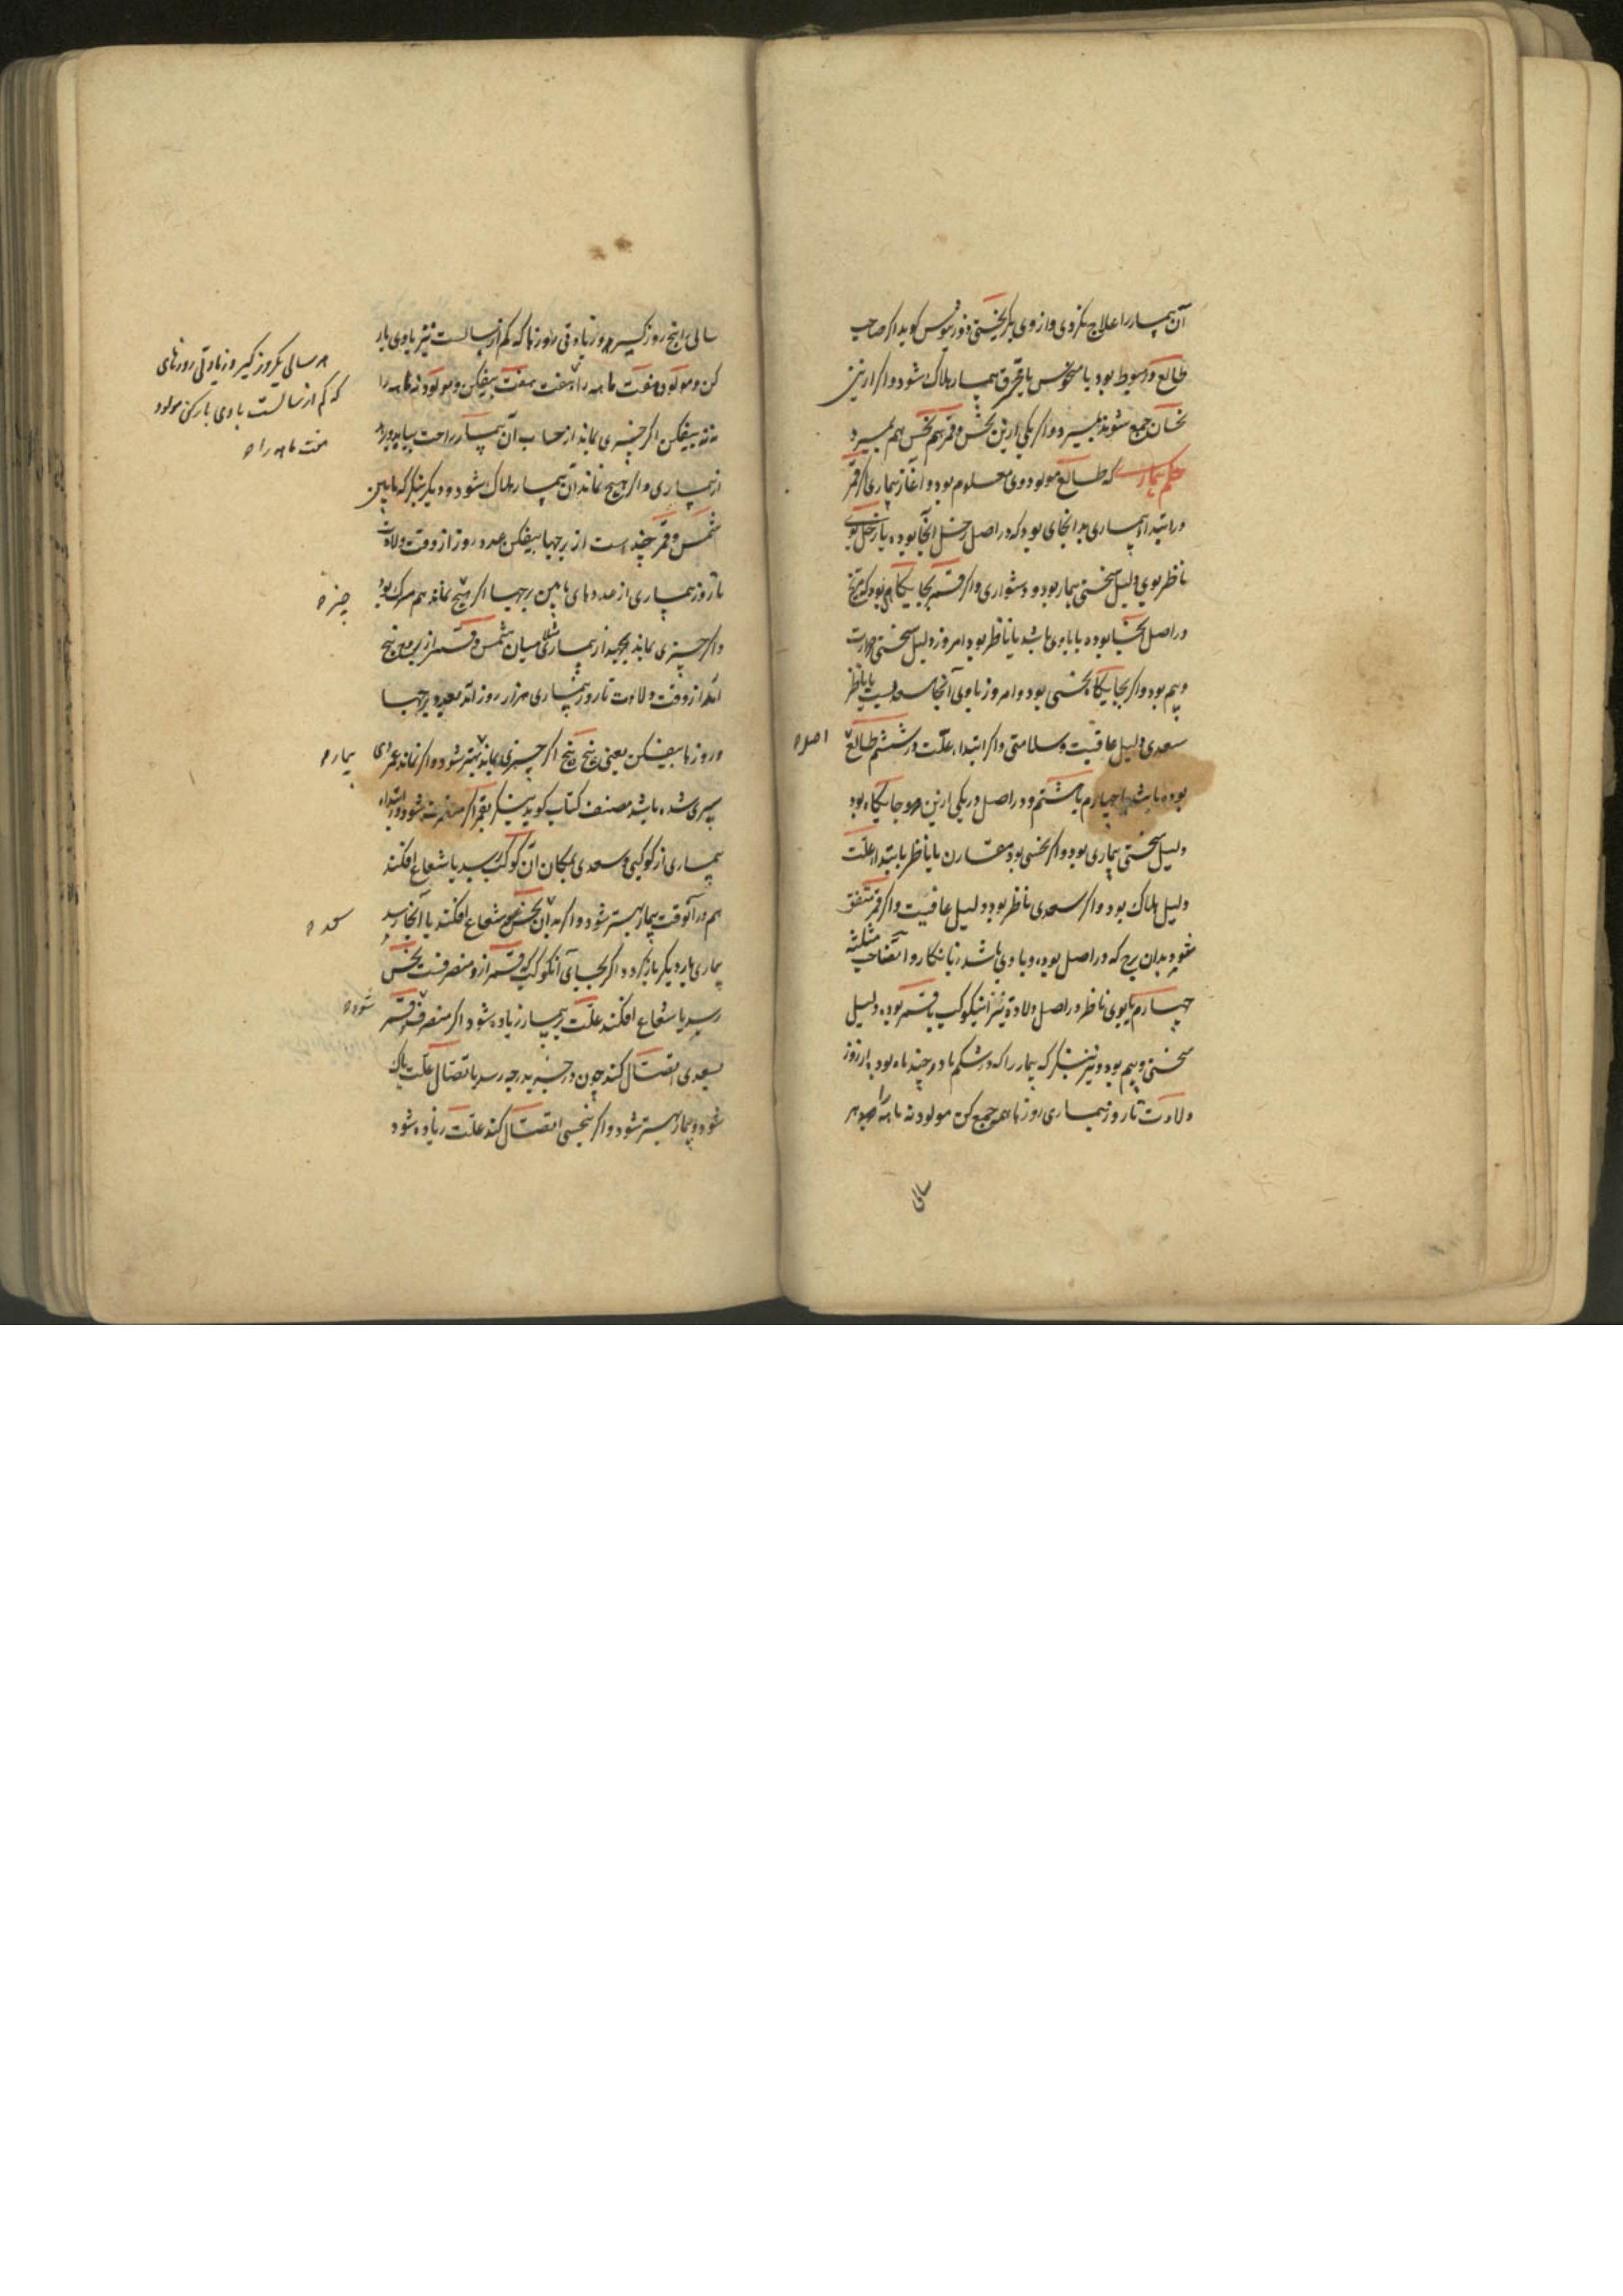 آن بیمار را علاج نکردی و از وی بگریختی و ذورنیوس کوید اکر صاحب
طالع در هبوط بود یا منحوس یا محترق بیمار هلاک شود و اکر ازین
نحسان جمع شوند بمیرد و اکر یکی ازین نحس و قمر هم نحس هم بمیرد
حکم بیمار که طالع مولود وی معلوم بود و آغاز بیماری اکر قمر
در ابتداء بیماری بدانجای بود که در اصل زحل آنجا بوده یا زحل بوی
ناظر بوی دلیل سختی بیمار بود و دشواری و اکر قمر بجایکاهی بود که مریخ
در اصل آنجا بوده یا باوی باشد یا ناظر بود امروز دلیل سختی حرارت
و بیم بود و اکر بجایکاه نحسی بود و امروز باوی آنجا سعدیست یا ناظر
سعدی دلیل عاقبت و سلامتی و اکر ابتداء علت در ششم طالع اصل
بوده باشد یا چهارم یا هشتم و در اصل در یکی ازین دو جایکاه بود
دلیل سختی بیماری بود و اکر نحسی بود مقارن یا ناظر بابتداء علت
دلیل هلاک بود و اکر سعدی ناظر بود دلیل عافیت و اکر قمر متفق
شود بدان برج که در اصل بوده و باوی باشد زیانکار و
چهارم یا بوی ناظر در اصل ولادة نیز اینکوکب با قمر بوده دلیل
سختی و بیم بود و نیز بنکر که بیمار را که در شکم مادر چند ماه بود از روز
ولادت تا روز بیماری روزها همه جمع کن مولود نه ماهه را هر
سالی
سالی را پنج روز کیر و زیادتی روزها که کم از سالست نیز باوی یار
کن و مولود هفت ماهه را هفت هفت بیفکن و مولود نه ماهه را
نه نه بیفکن اکر چیزی بماند از حساب آن بیمار راحت بیابد و برهد
از بیماری و اکر هیچ نماند آن بیمار هلاک شود و دیکر بنکر که مابین
شمس و قمر چند است از برجها بیفکن عدد روز از وقت ولادت
تا روز بیماری از عددهای مابین برجها اکر هیچ نماند هم مرک بود
و اکر چیزی بماند بجهد از بیماری مثلا میان شمس و قمر از برج پنج
آمد از وقت ولادت تا روز بیماری هزار روز آمد بعدد برجها
و روزها بیفکن یعنی پنج پنج اکر چیزی بماند بهتر شود و اکر نماند عمر وی
سپری شده باشد مصنف کتاب کوید بنکر بقمر اکر منصرف شود در ابتداء
بیماری از کوکبی و سعدی بمکان آن کوکب رسد یا شعاع افکند
هم در آنوقت بیمار بهتر شود و اکر بدان نحس شعاع افکند یا آنجا رسد
بیماری بار دیکر بازکردد و اکر بجای آنکوکب که قمر ازو منصرفست نحس
رسد یا شعاع افکند علت بر بیمار زیاده شود اکر منصرف قمر
بسعدی اتصال کند چون درجه بدرجه رسد با تصال علت پاک
شود و بیمار بهتر شود و اکر بنحسی اتصال کند علت زیاده شود
سالی یکروز کیر و زیادتی روزهای
که کم از سالست باوی یار کن مولود
هفت ماهه را
چیز
بیمار
شود